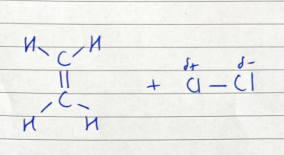 H H
C
||
C
H H
+
δ+ δ-
Cl — Cl